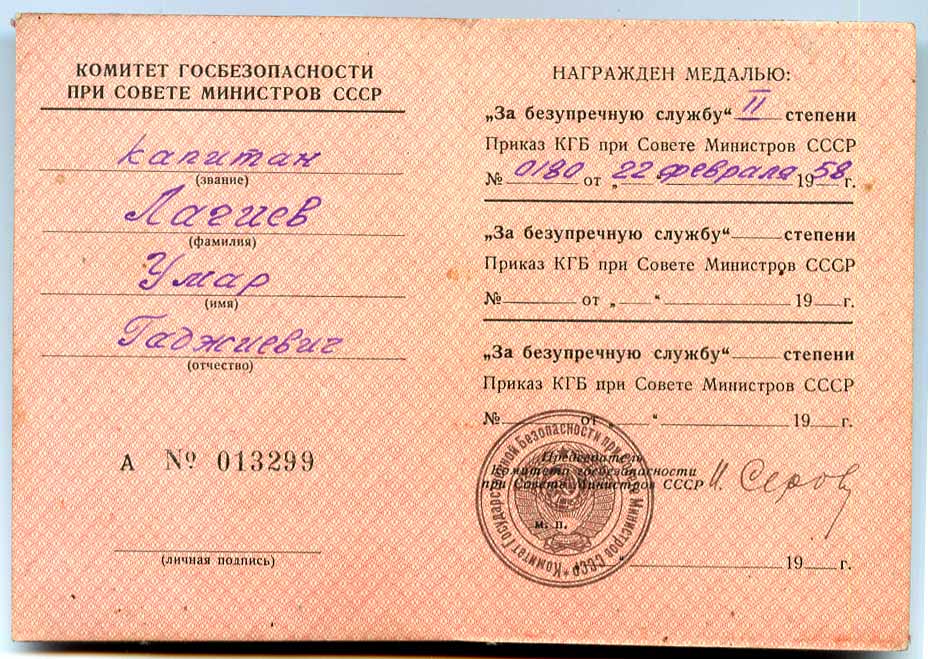 КОМИТЕТ ГОСБЕЗОПАСНОСТИ
ПРИ СОВЕТЕ МИНИСТРОВ СССР
капитан
(звание)
Лагиев
(фамилия)
Умар
(имя)
Гаджиевич
(отчество)
А № 013299
(личная подпись)
НАГРАЖДЕН МЕДАЛЬЮ:
„За безупречную службу“ II степени
Приказ КГБ при Совете Министров СССР
№ 0180 от „ 22 февраля 1958 г.
„За безупречную службу“ степени
Приказ КГБ при Совете Министров СССР
№ от „ “ 19 г.
„За безупречную службу“ степени
Приказ КГБ при Совете Министров СССР
№ от „ “ 19 г.
Председатель
Комитета госбезопасности
при Совете Министров СССР И. Серов
м. п.
Комитет Государственной Безопасности при Совете Министров СССР
19 г.